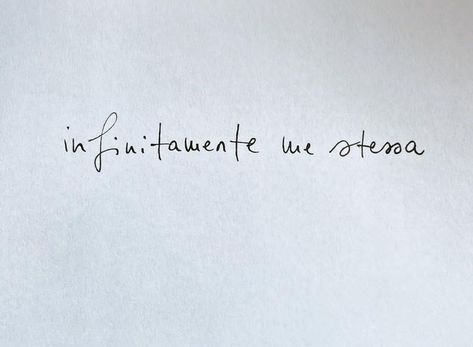 infinitamente me stessa